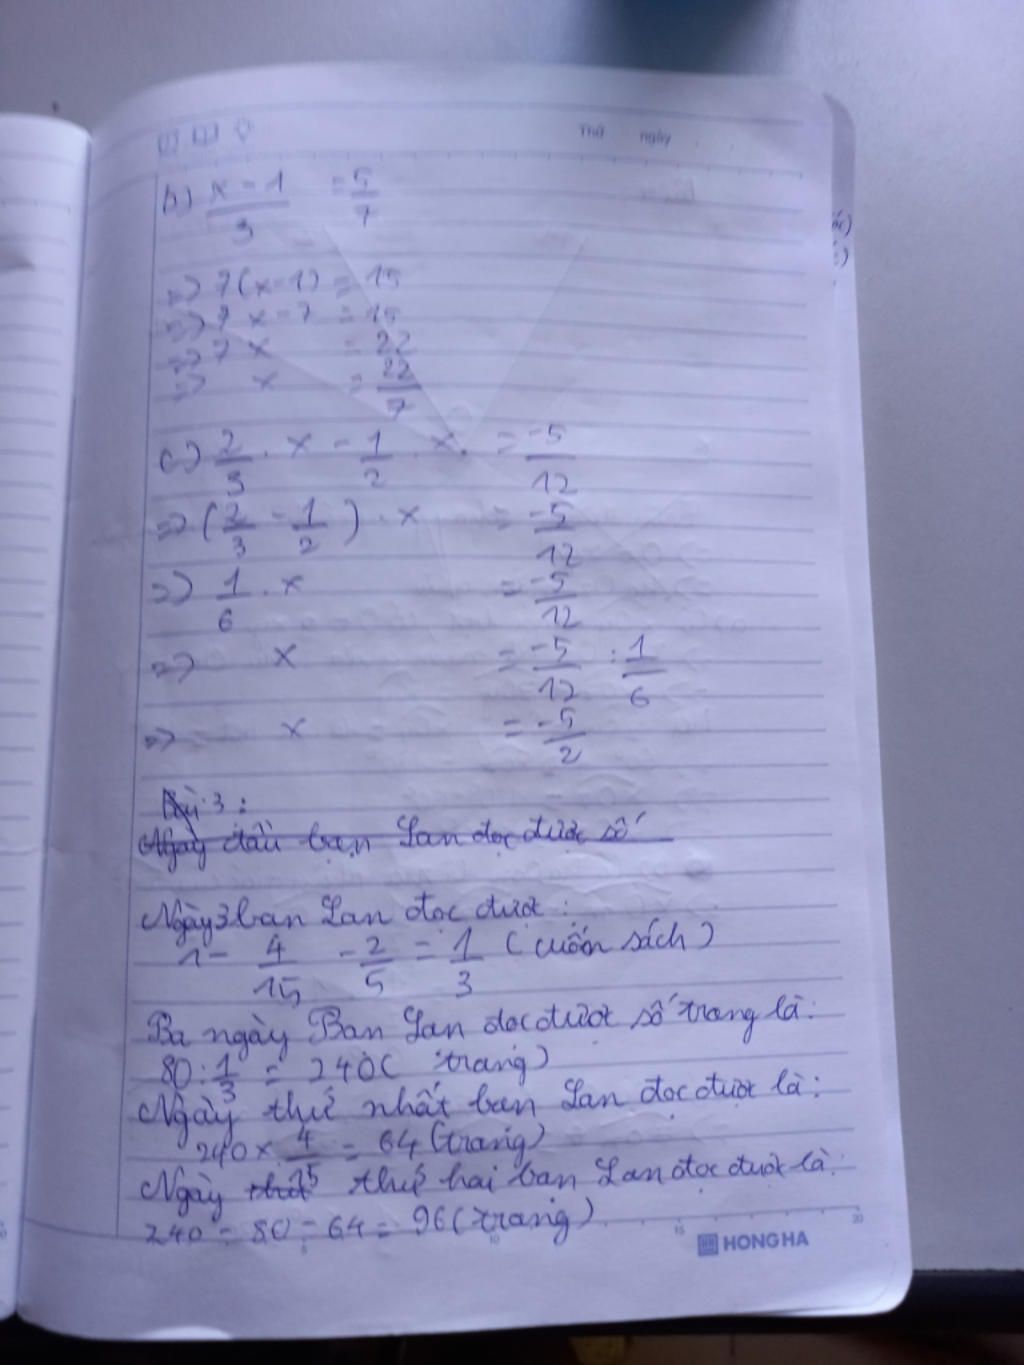 Thứ ngày
b) x - 1 / 3 = 5/7
=> 7(x-1) = 15
=> 7x - 7 = 15
=> 7x = 22
=> x = 22/7
c) 2/3 . x - 1/2 . x = -5/12
=> (2/3 - 1/2) . x = -5/12
=> 1/6 . x = -5/12
=> x = -5/12 : 1/6
=> x = -5/2
Bài 3:
Ngày đầu bạn Lan đọc được số
Ngày 3 bạn Lan đọc được:
1 - 4/15 - 2/5 = 1/3 (cuốn sách)
Ba ngày Bạn Lan đọc được số trang là:
80 : 1/3 = 240 (trang)
Ngày thứ nhất bạn Lan đọc được là:
240 x 4/15 = 64 (trang)
Ngày thứ hai bạn Lan đọc được là:
240 - 80 - 64 = 96 (trang)
5 10 15 20
HH HONG HA